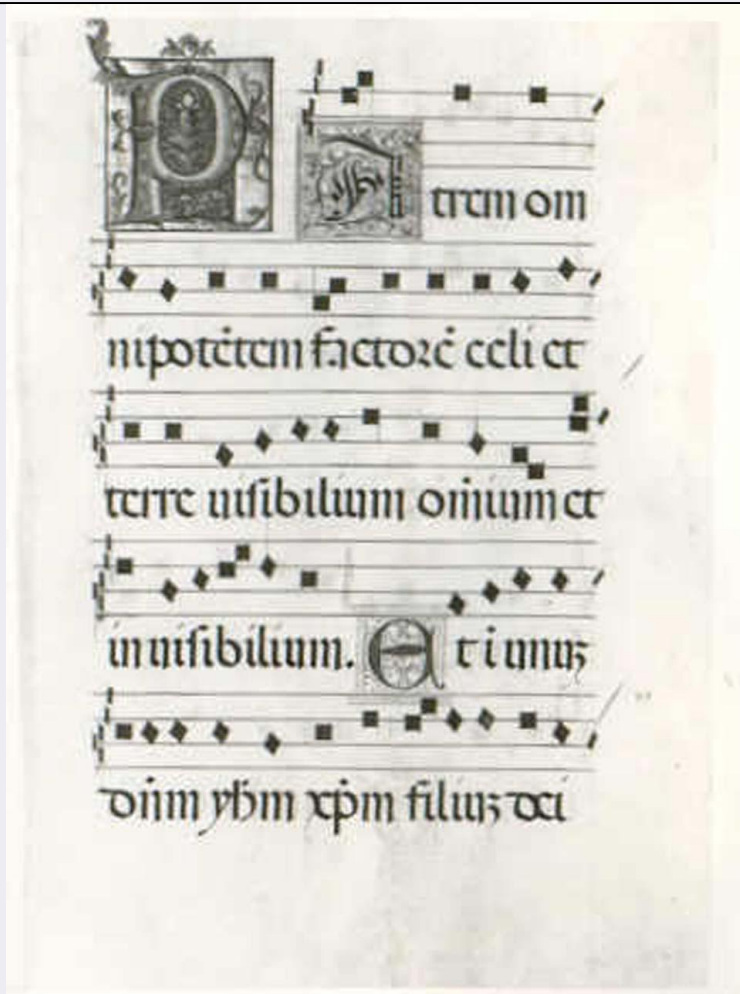 PAtrem om
nipotētem factorē celi et
terre uisibilium om̄ium et
inuisibilium. Et i unuꝫ
dn̄m yħm xp̄m filiuꝫ dei